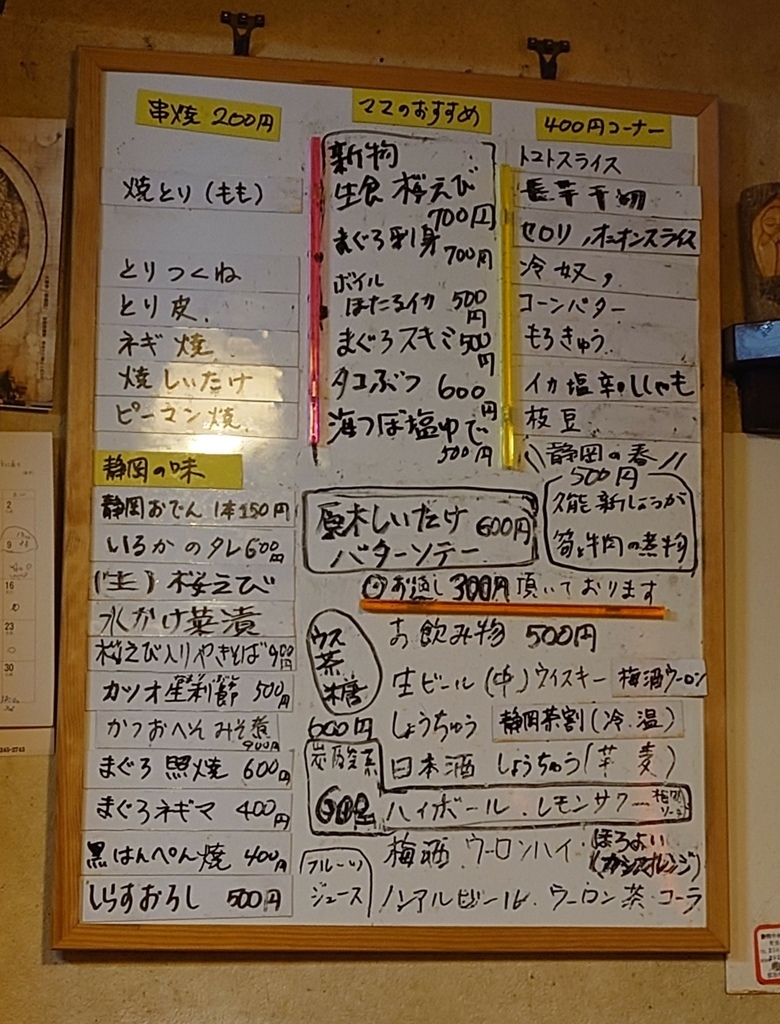 串焼 200円
焼とり(もも)
とりつくね
とり皮
ネギ焼
焼しいたけ
ピーマン焼
静岡の味
静岡おでん 1本150円
いるかのタレ 600円
(生)桜えび
水かけ菜漬
桜えび入りやきそば 900円
カツオ 500円
かつおへそみそ煮 900円
まぐろ照焼 600円
まぐろネギマ 400円
黒はんぺん焼 400円
しらすおろし 500円
ママのおすすめ
新物
生食 桜えび
700円
まぐろ刺身
700円
ボイル
ほたるイカ 500円
まぐろスキミ 500円
タコぶつ 600円
海つぼ塩ゆで
500円
400円コーナー
トマトスライス
長芋千切
セロリ,オニオンスライス
冷奴,
コーンバター
もろきゅう
イカ塩辛・ししゃも
枝豆
\\静岡の春//
500円
久能新しょうが
筍と牛肉の煮物
原木しいたけ 600円
バターソテー
お通し300円頂いております
お飲み物 500円
生ビール(中)ウイスキー 梅酒ウーロン
しょうちゅう 静岡茶割(冷.温)
日本酒 しょうちゅう(芋 麦)
ウス茶糖
600円
炭酸系
600円
ハイボール.レモンサワー
梅酒 ウーロンハイ・ほろよい
(カシスオレンジ)
フルーツ
ジュース
ノンアルビール. ウーロン茶 コーラ